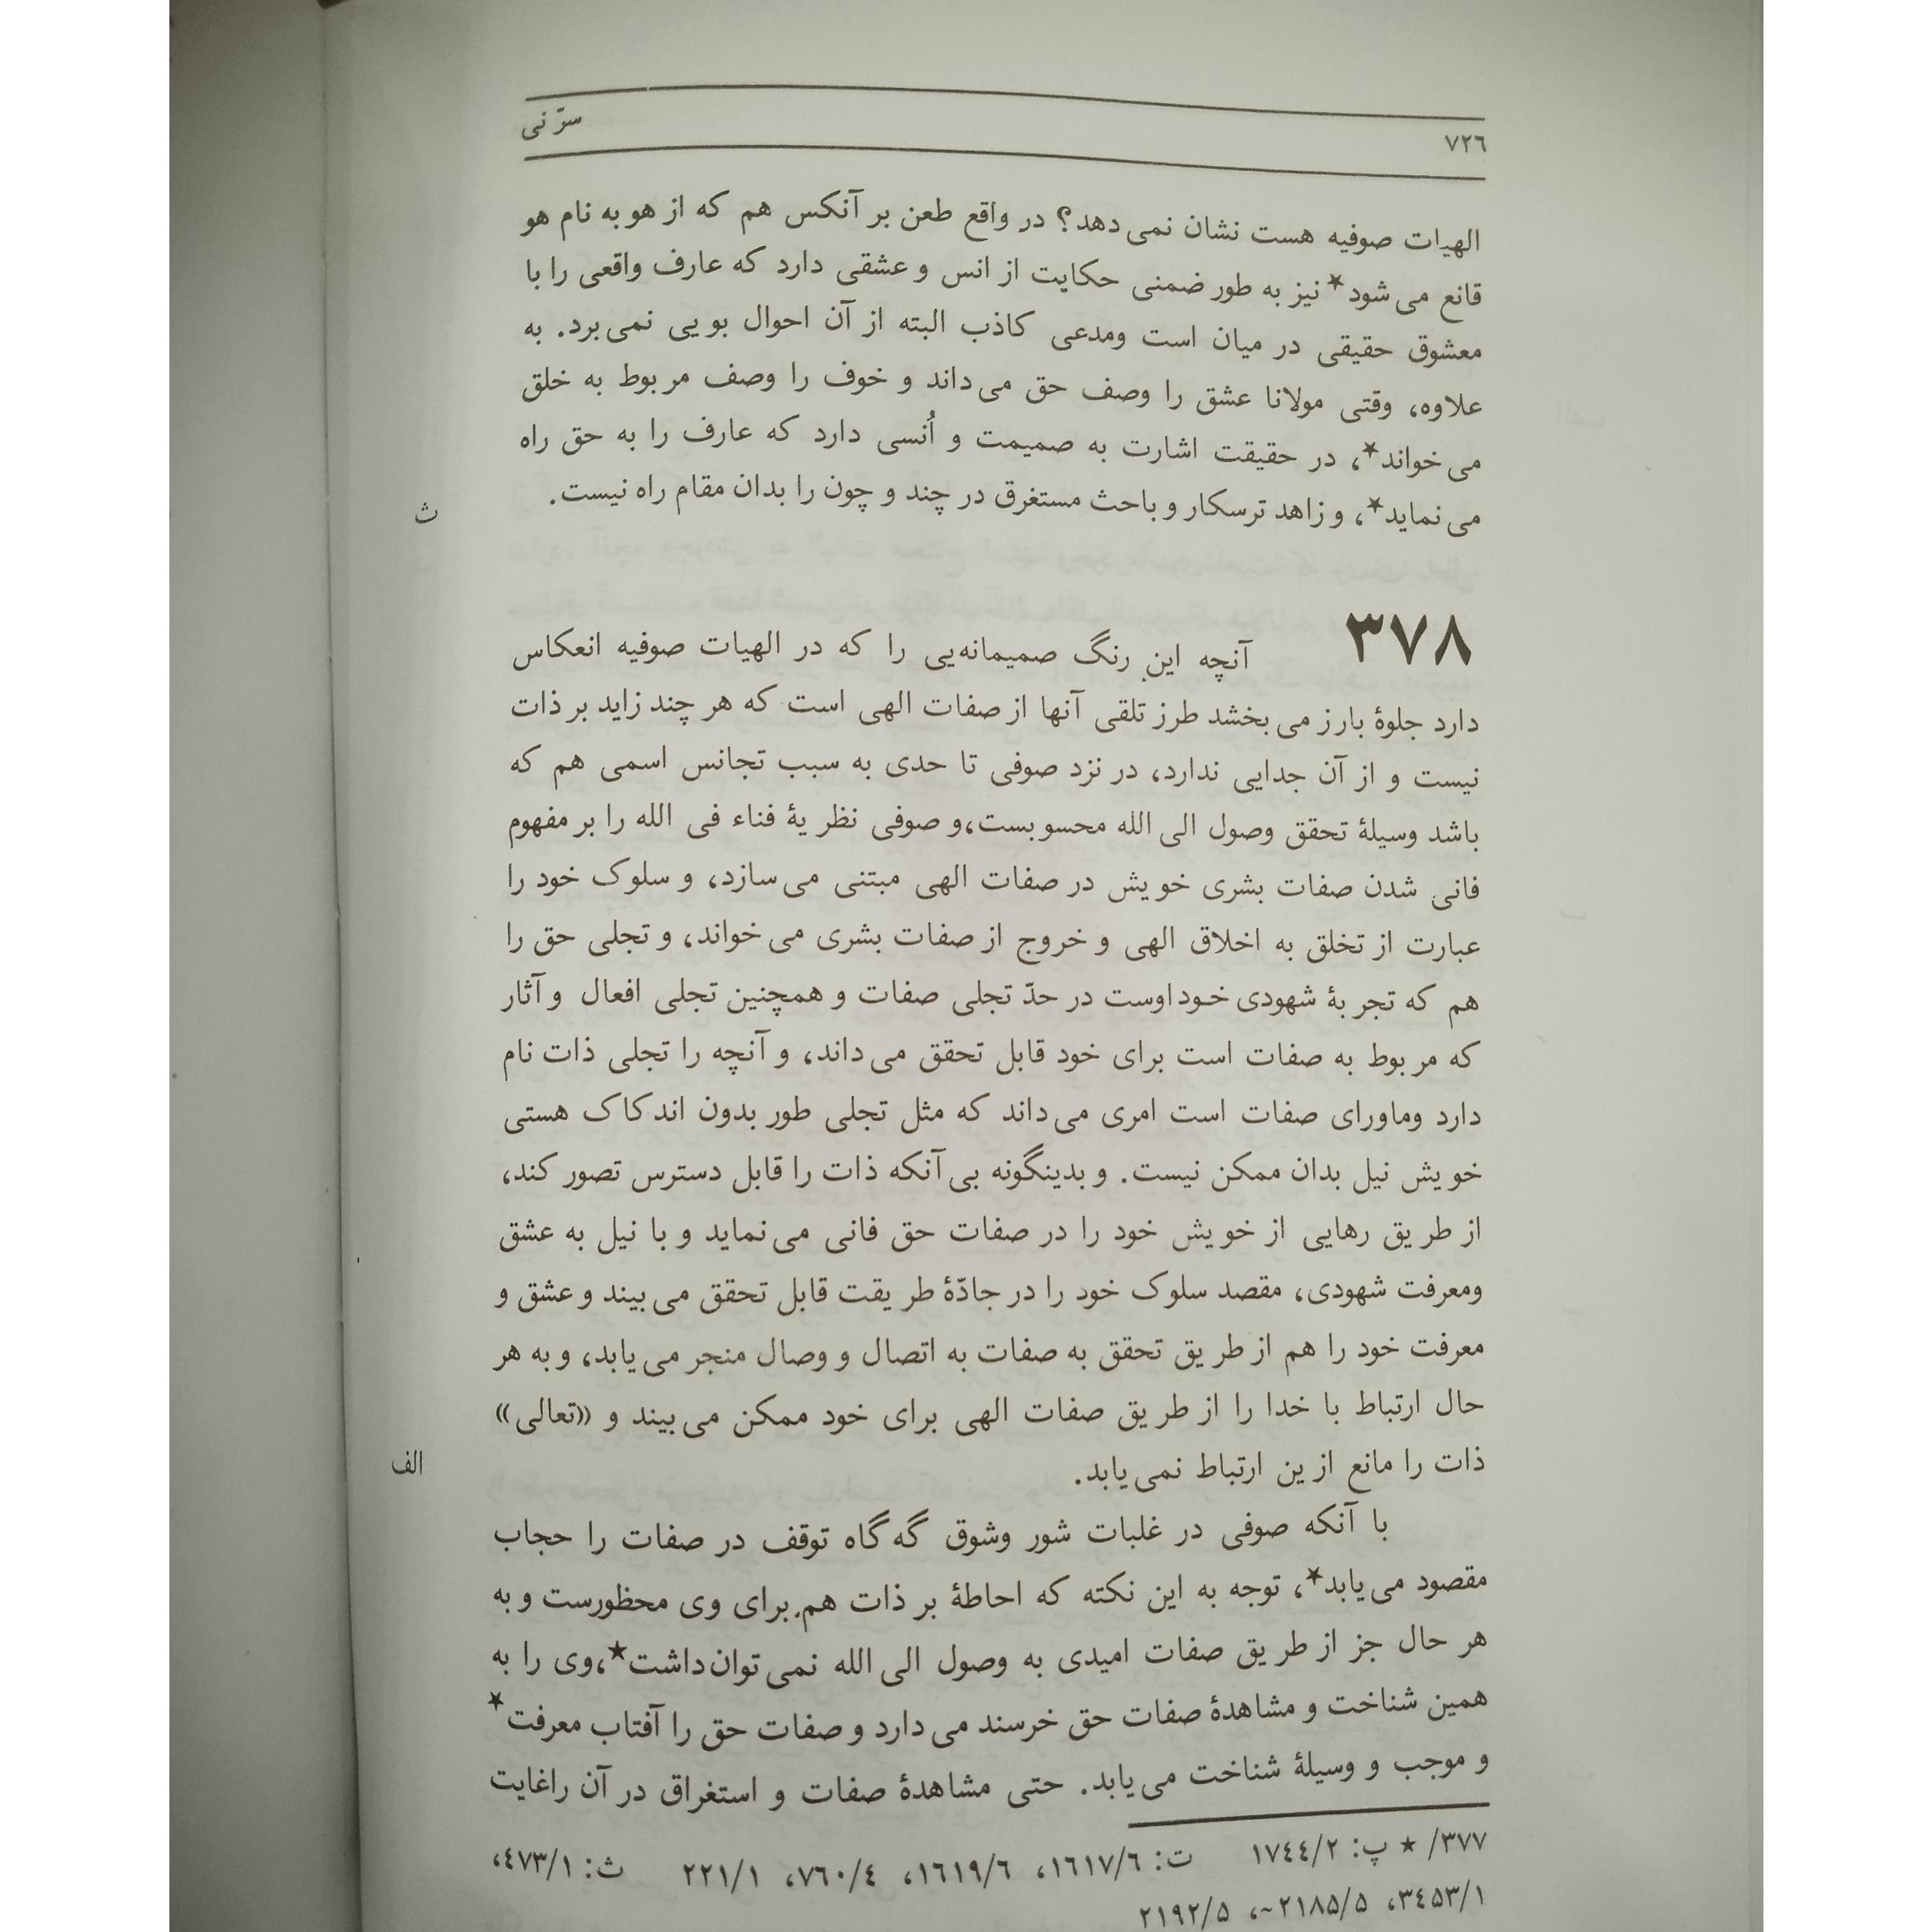 ۷۲٦ سرّ نی
الهیات صوفیه هست نشان نمی‌دهد؟ در واقع طعن بر آنکس هم که از هو به نام هو
قانع می‌شود* نیز به طور ضمنی حکایت از انس و عشقی دارد که عارف واقعی را با
معشوق حقیقی در میان است ومدعی کاذب البته از آن احوال بویی نمی‌برد. به
علاوه، وقتی مولانا عشق را وصف حق می‌داند و خوف را وصف مربوط به خلق
می‌خواند*، در حقیقت اشارت به صمیمت و اُنسی دارد که عارف را به حق راه
می‌نماید*، و زاهد ترسکار و باحث مستغرق در چند و چون را بدان مقام راه نیست.
ث
۳۷۸ آنچه این رنگ صمیمانه‌یی را که در الهیات صوفیه انعکاس
دارد جلوهٔ بارز می‌بخشد طرز تلقی آنها از صفات الهی است که هر چند زاید بر ذات
نیست و از آن جدایی ندارد، در نزد صوفی تا حدی به سبب تجانس اسمی هم که
باشد وسیلهٔ تحقق وصول الی الله محسوبست،و صوفی نظریهٔ فناء فی الله را بر مفهوم
فانی شدن صفات بشری خویش در صفات الهی مبتنی می‌سازد، و سلوک خود را
عبارت از تخلق به اخلاق الهی و خروج از صفات بشری می‌خواند، و تجلی حق را
هم که تجربهٔ شهودی خود اوست در حدّ تجلی صفات و همچنین تجلی افعال و آثار
که مربوط به صفات است برای خود قابل تحقق می‌داند، و آنچه را تجلی ذات نام
دارد وماورای صفات است امری می‌داند که مثل تجلی طور بدون اندکاک هستی
خویش نیل بدان ممکن نیست. و بدینگونه بی‌آنکه ذات را قابل دسترس تصور کند،
از طریق رهایی از خویش خود را در صفات حق فانی می‌نماید و با نیل به عشق
ومعرفت شهودی، مقصد سلوک خود را در جادّهٔ طریقت قابل تحقق می‌بیند و عشق و
معرفت خود را هم از طریق تحقق به صفات به اتصال و وصال منجر می‌یابد، و به هر
حال ارتباط با خدا را از طریق صفات الهی برای خود ممکن می‌بیند و «تعالی»
ذات را مانع ازین ارتباط نمی‌یابد.
الف
با آنکه صوفی در غلبات شور وشوق گه گاه توقف در صفات را حجاب
مقصود می‌یابد*، توجه به این نکته که احاطهٔ بر ذات هم برای وی محظورست و به
هر حال جز از طریق صفات امیدی به وصول الی الله نمی‌توان داشت*،وی را به
همین شناخت و مشاهدهٔ صفات حق خرسند می‌دارد و صفات حق را آفتاب معرفت*
و موجب و وسیلهٔ شناخت می‌یابد. حتی مشاهدهٔ صفات و استغراق در آن راغایت
۳۷۷/ * پ: ۱۷٤٤/۲ ت: ۱٦۱۷/٦، ۱٦۱۹/٦، ۷٦۰/٤، ۲۲۱/۱ ث: ٤۷۳/۱،
۳٤۵۳/۱، ۲۱۸۵/۵~، ۲۱۹۲/۵